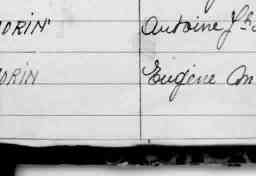 ORIN Antoine Jh
ORIN Eugène